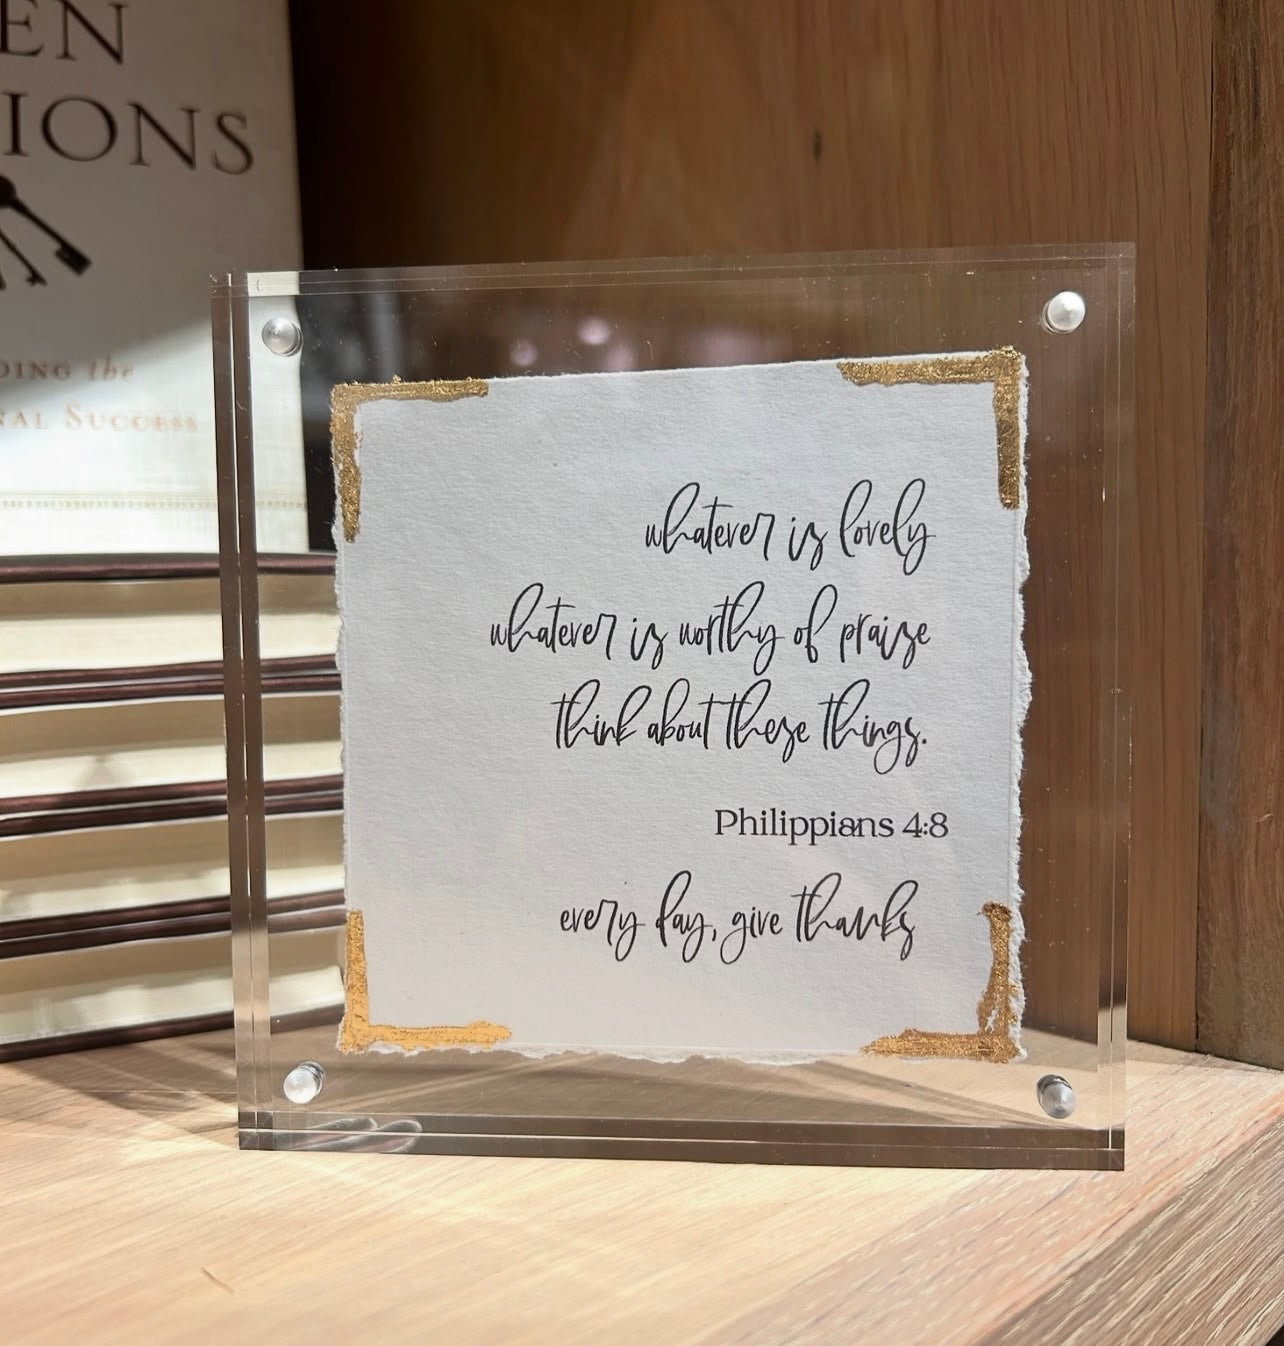 EN
IONS
DING the
NAL SUCCESS
whatever is lovely
whatever is worthy of praise
think about these things.
Philippians 4:8
every day, give thanks